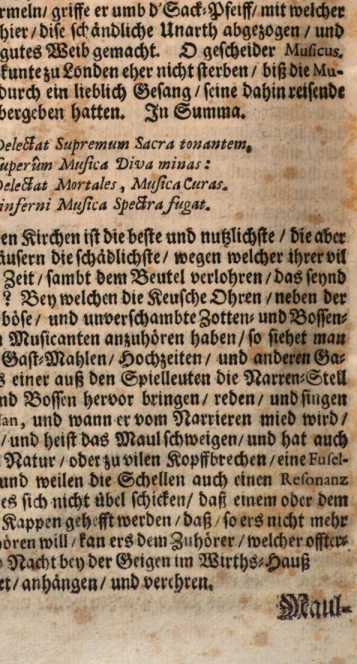 rmeln/ griffe er umb d'Sack-Pfeiff/ mit welcher
hier/ dise schändliche Unarth abgezogen/ und
gutes Weib gemacht. O gescheider Musicus.
kunte zu Londen eher nicht sterben/ biß die Mu-
durch ein lieblich Gesang/ seine dahin reisende
bergeben hatten. In Summa.
Delectat Supremum Sacra tonantem,
Superûm Musica Diva minas:
Delectat Mortales, Musica Curas.
inferni Musica Spectra fugat.
en Kirchen ist die beste und nutzlichste/ die aber
äusern die schädlichste/ wegen welcher ihrer vil
Zeit/ sambt dem Beutel verlohren/ das seynd
? Bey welchen die Keusche Ohren/ neben der
böse/ und unverschambte Zotten- und Bossen-
n Musicanten anzuhören haben/ so siehet man
Gast-Mahlen/ Hochzeiten/ und anderen Ga-
s einer auß den Spielleuten die Narren-Stell
nd Bossen hervor bringen/ reden/ und singen
an, und wann er vom Narrieren mied wird/
/ und heist das Maul schweigen/ und hat auch
Natur/ oder zu vilen Kopffbrechen/ eine Fusel-
und weilen die Schellen auch einen Resonanz
es sich nicht übel schicken/ daß einem oder dem
Kappen gehefft werden/ daß/ so ers nicht mehr
ören will/ kan ers dem Zuhörer/ welcher offter-
Nacht bey der Geigen im Wirths-Hauß
et/ anhängen/ und verehren.
Maul-